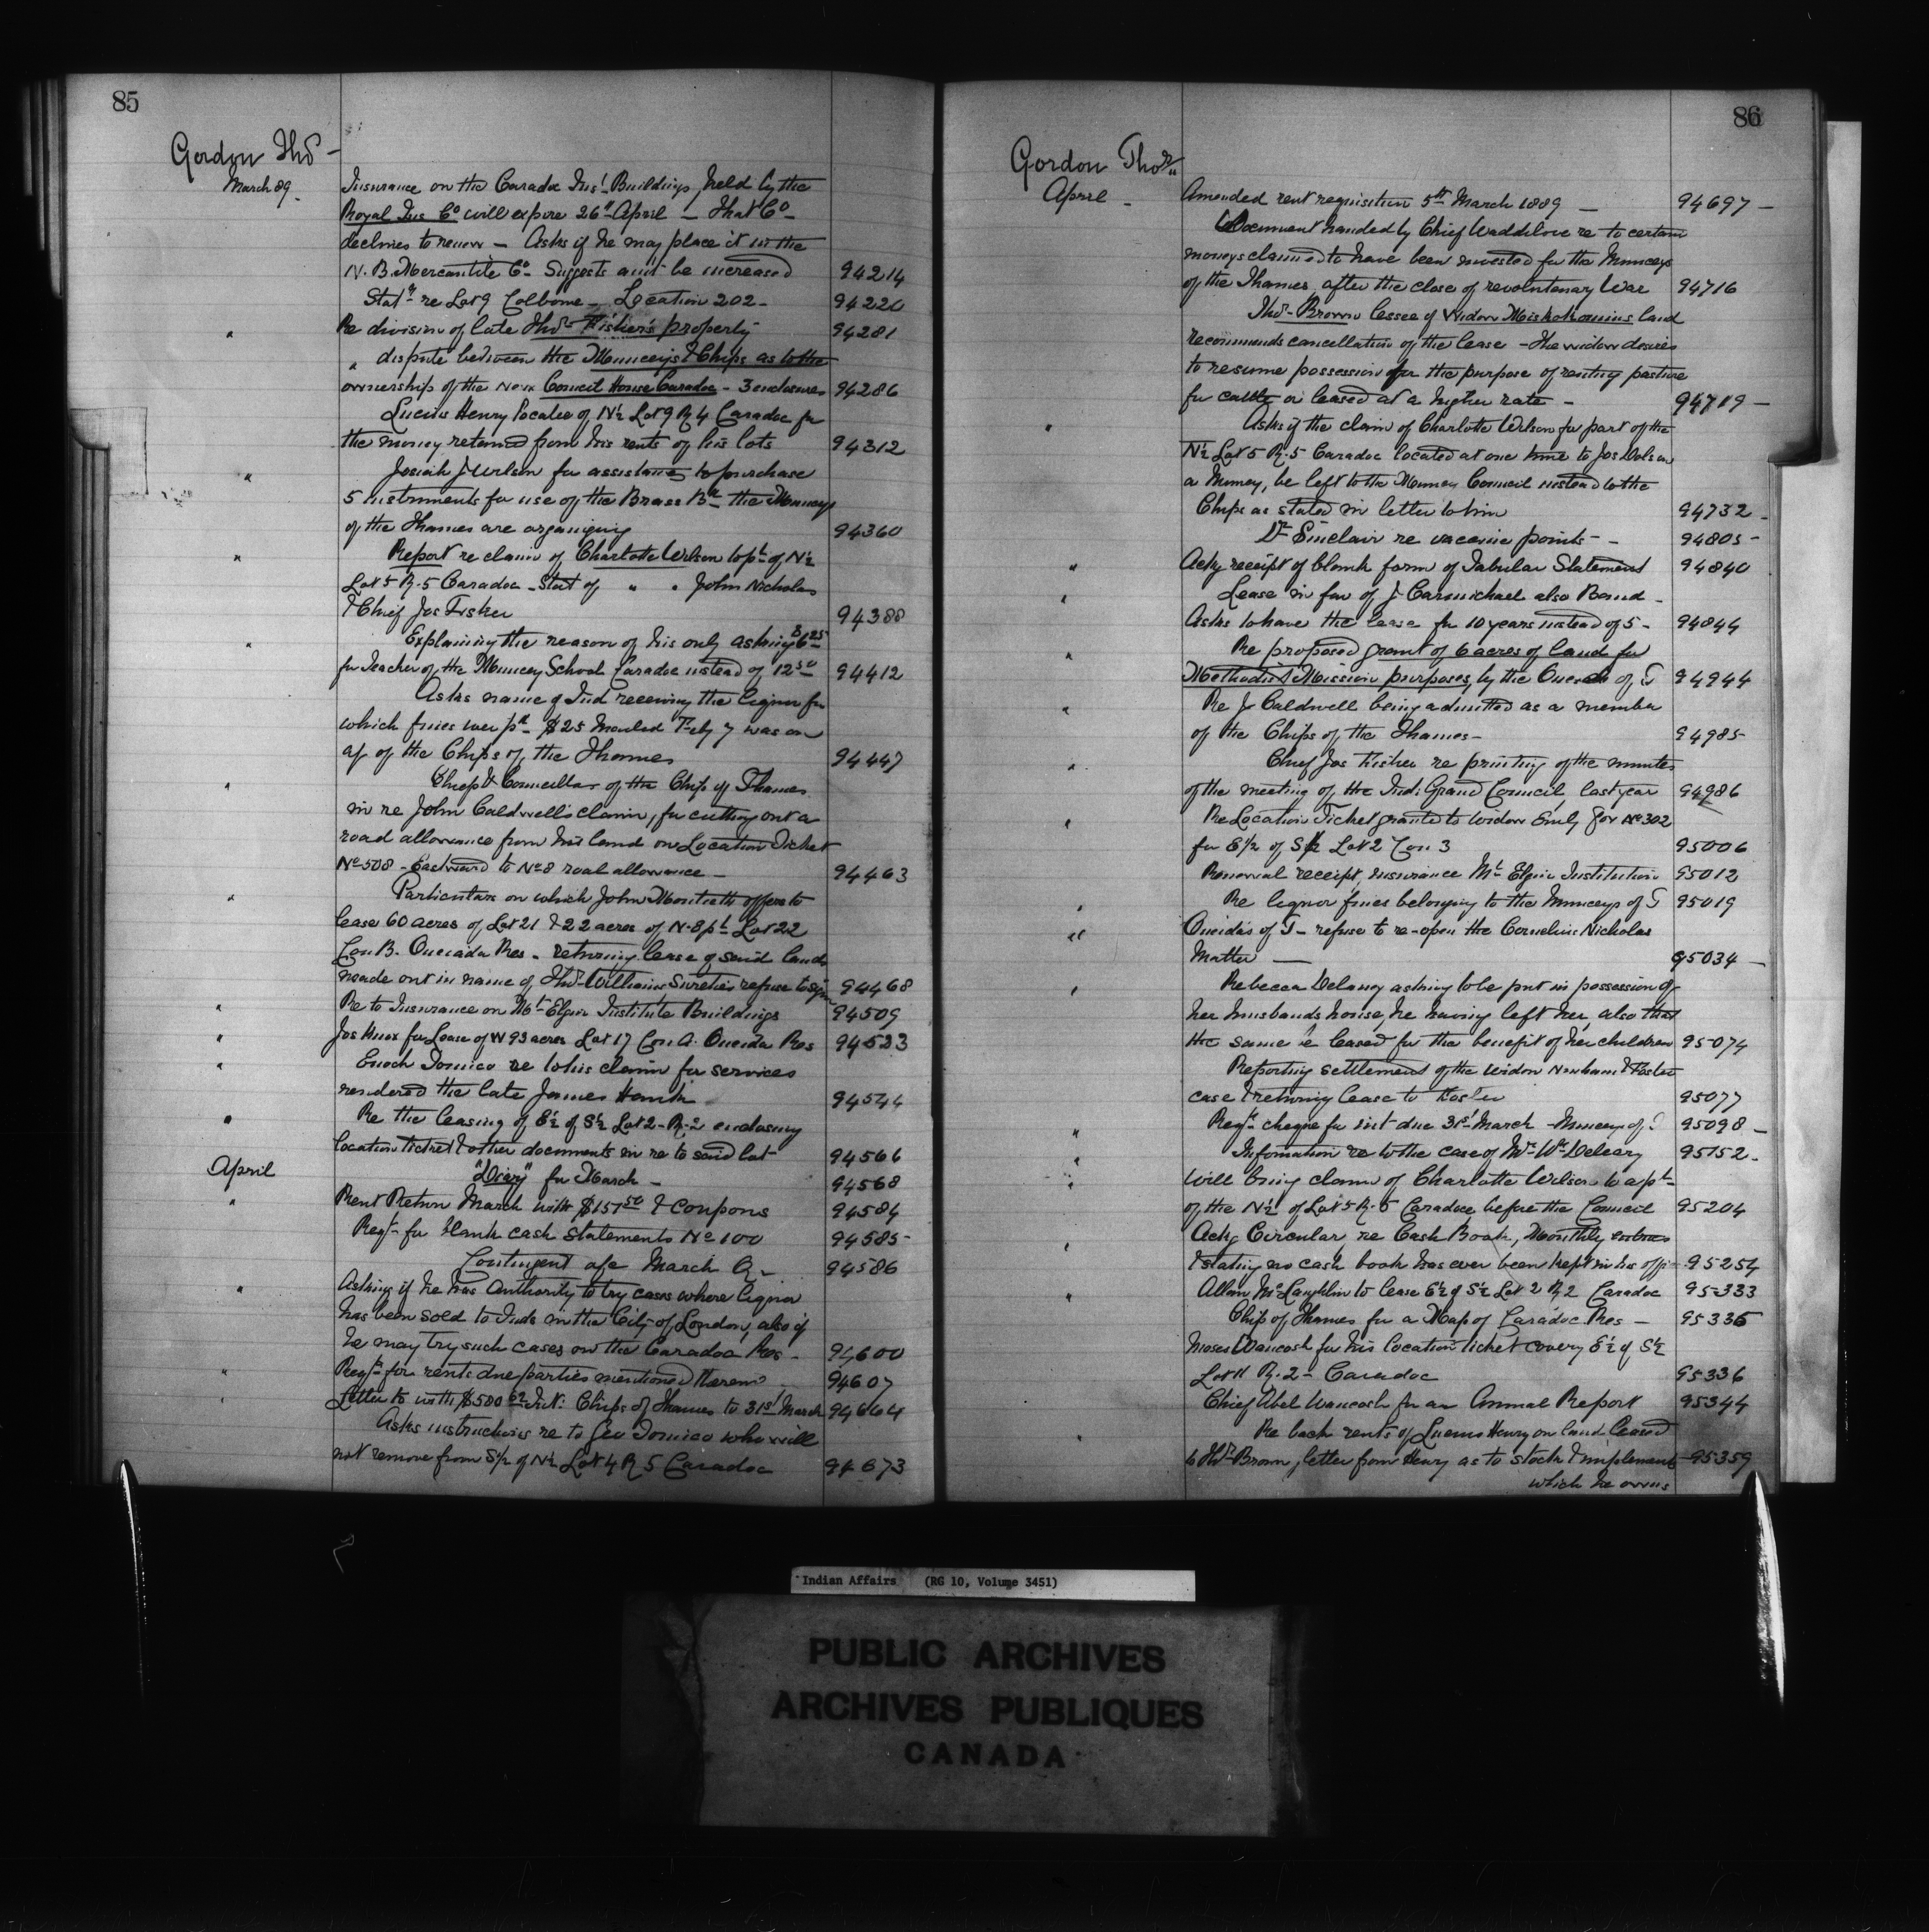 85
Gordon Thos -
March 89.
Insurance on the Caradoc Ins't Buildings, held by the
Royal Ins Co will expire 26th April - That Co
declines to renew - Asks if he may place it in the
N. B. Mercantile Co - Suggests amt be increased 94214
Stat're Lot 9 Colborne - Location 202 - 94220
" Re division of late Thos Fisher's property 94281
" dispute between the Munceys & Chips as to the
ownership of the New Council House Caradoc - 3 enclosures 94286
Lucius Henry locatee of N½ Lot 9 R 4 Caradoc for
the money retained from his rents of his lots 94312
" Josiah J Wilson for assistance to purchase
5 instruments for use of the Brass Bd the Munceys
of the Thames are organizing 94360
" Report re claim of Charlotte Wilson to pt of N½
Lot 5 R. 5 Caradoc - Stat of " " John Nicholas
& Chief Jos Fisher 94388
" Explaining the reason of his only asking $6.25
for Teacher of the Muncey School Caradoc instead of 12.50 94412
Asks name of Ind receiving the liquor for
which fines were pd $25 Feby 7 was on
a/c of the Chips of the Thames 94447
" Chief & Councillors of the Chip of Thames
in re John Caldwell's claim, for cutting out a
road allowance from his land on Location Ticket
No 508 - Eastward to No 8 road allowance - 94463
" Particulars on which John Monteith offers to
lease 60 acres of Lot 21 & 22 acres of N. E pt Lot 22
Con B. Oneida Res - returning lease of said lands
made out in name of Thos Williams Sureties refuse to sign 94468
" Re to Insurance on Mt Elgin Institute Buildings 94509
" Jos Knox for Lease of W 93 acres Lot 17 Con A. Oneida Res 94523
" Enoch Tomico re to his claim for services
rendered the late James Hank 94544
" Re the leasing of E½ of S½ Lot 2 - R. 2 enclosing
location ticket & other documents in re to said lot 94566
April "Diary" for March - 94568
" Rent Return March with $157.50 & coupons 94584
Reqn for blank cash statements No 100 94585
Contingent a/c March Qr 94586
" Asking if he has Authority to try cases where liquor
has been sold to Inds in the City of London, also if
he may try such cases on the Caradoc Res - 94600
" Reqn for rents due parties mentioned therein 94607
" Letter to with $500 Int: Chips of Thames to 31st March 94664
Asks instructions re to Geo Tomico who will
not remove from S½ of N½ Lot 4 R 5 Caradoc 94673
86
Gordon Thos
April - Amended rent requisition 5th March 1889 - 94697 -
Document handed by Chief Waddilove re to certain
moneys claimed to have been invested for the Munceys
of the Thames, after the close of revolutenary War 94716
Thos - Brown lessee of Widow Miskokomins land
recommends cancellation of the lease - The widow desires
to resume possession for the purpose of renting pasture
for cattle or leased at a higher rate - 94719 -
" Asks if the claim of Charlotte Wilson for part of the
N½ Lot 5 R. 5 Caradoc located at one time to Jos Dolson
a Muncey, be left to the Muncey Council instead to the
Chips as stated in letter to him 94732 -
Dr Sinclair re vaccine points - - 94805 -
" Ackg receipt of blank form of Tabular Statement 94840
" Lease in fav of J Carmichael also Bond -
Asks to have the lease for 10 years instead of 5 - 94844
" Re proposed grant of 6 acres of land for
Methodist Mission purposes, by the Oneidas of T 94944
" Re J Caldwell being admitted as a member
of the Chips of the Thames - 94985
" Chief Jos Fisher re printing of the minutes
of the meeting of the Ind: Grand Council last year 94986
" Re Location Ticket granted to Widow Emily Fox No 302
for E½ of S½ Lot 2 Con 3 95006
Renewal receipt, insurance Mt Elgin Institution 95012
" Re liquor fines belonging to the Munceys of T 95019
" Oneidas of T - refuse to re-open the Cornelius Nicholas
Matter - 95034 -
" Rebecca Delaney asking to be put in possession of
her husbands house, he having left her, also that
the same be leased for the benefit of her children 95074
Reporting settlement of the widow & Foster
case & returning lease to Foster 95077
" Reqn cheque for int due 31st March - Munceys of T 95098 -
" Information re to the case of Mrs Wm Deleary 95152 -
" Will bring claim of Charlotte Wilson to a pt
of the N½ of Lot 5 R. 5 Caradoc before the Council 95204
" Ackg Circular re Cash Book, Monthly
& stating no cash book has ever been kept in his offi 95254
" Allan McLaughlin to lease E½ of S½ Lot 2 R 2 Caradoc 95333
Chip of Thames for a Map of Caradoc Res - 95335
Moses Wancosh for his location ticket covery E½ of S½
Lot 11 R. 2 - Caradoc 95336
Chief Abel Wancosh for an Annual Report 95344
" Re back rents of Lucius Henry on land leased
to Thos Brown, letter from Henry as to stock & implements 95359
which he owns
Indian Affairs (RG 10, Volume 3451)
PUBLIC ARCHIVES
ARCHIVES PUBLIQUES
CANADA